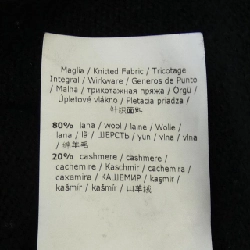 Maglia / Knitted Fabric / Tricotage
Integral / Wirkware / Generos de Punto
/ Malha / трикотажная пряжа / Orgu /
Upletové vlákno / Pletacia priadza /
针织面料
80% lana / wool / laine / Wolle /
lana / lã / ШЕРСТЬ / yun / vlne / vlna
/ 绵羊毛
20% cashmere / cashmere /
cachemire / Kaschmir / cachemira /
caxemira / КАШЕМИР / kaşmir /
kašmír / kašmír / 山羊绒